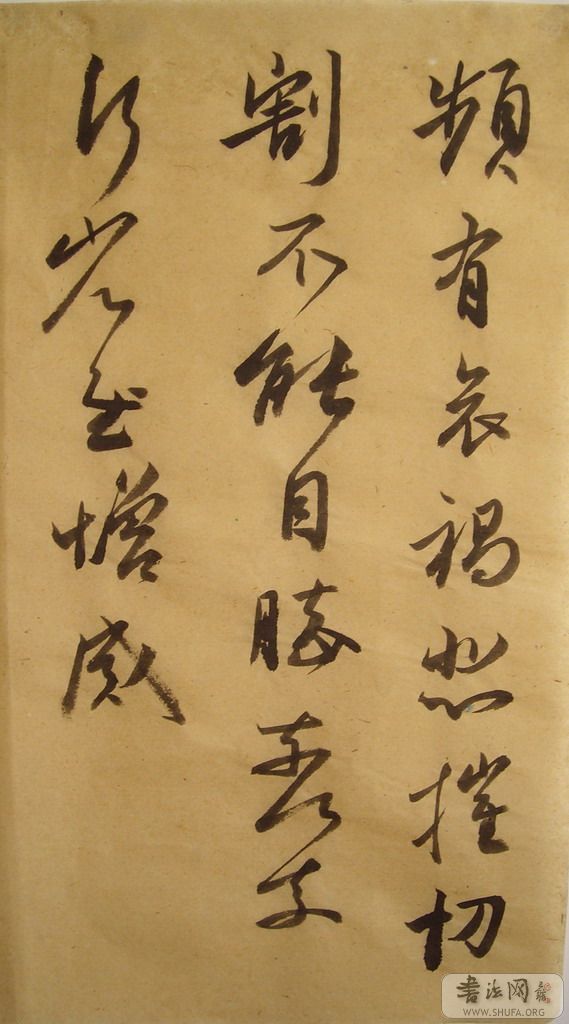 頻有哀禍悲摧切
割不能自勝奈何奈
何省慰增感
書法网
WWW.SHUFA.ORG